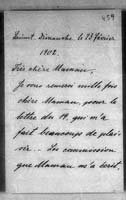 459
Dimanche, le 23 février
1902.
Très chère Maman,
Je vous remercie mille fois
chère Maman, pour la
lettre du 19, qui m'a
fait beaucoup de plai-
sir. La commission
que Maman m'a écrit,